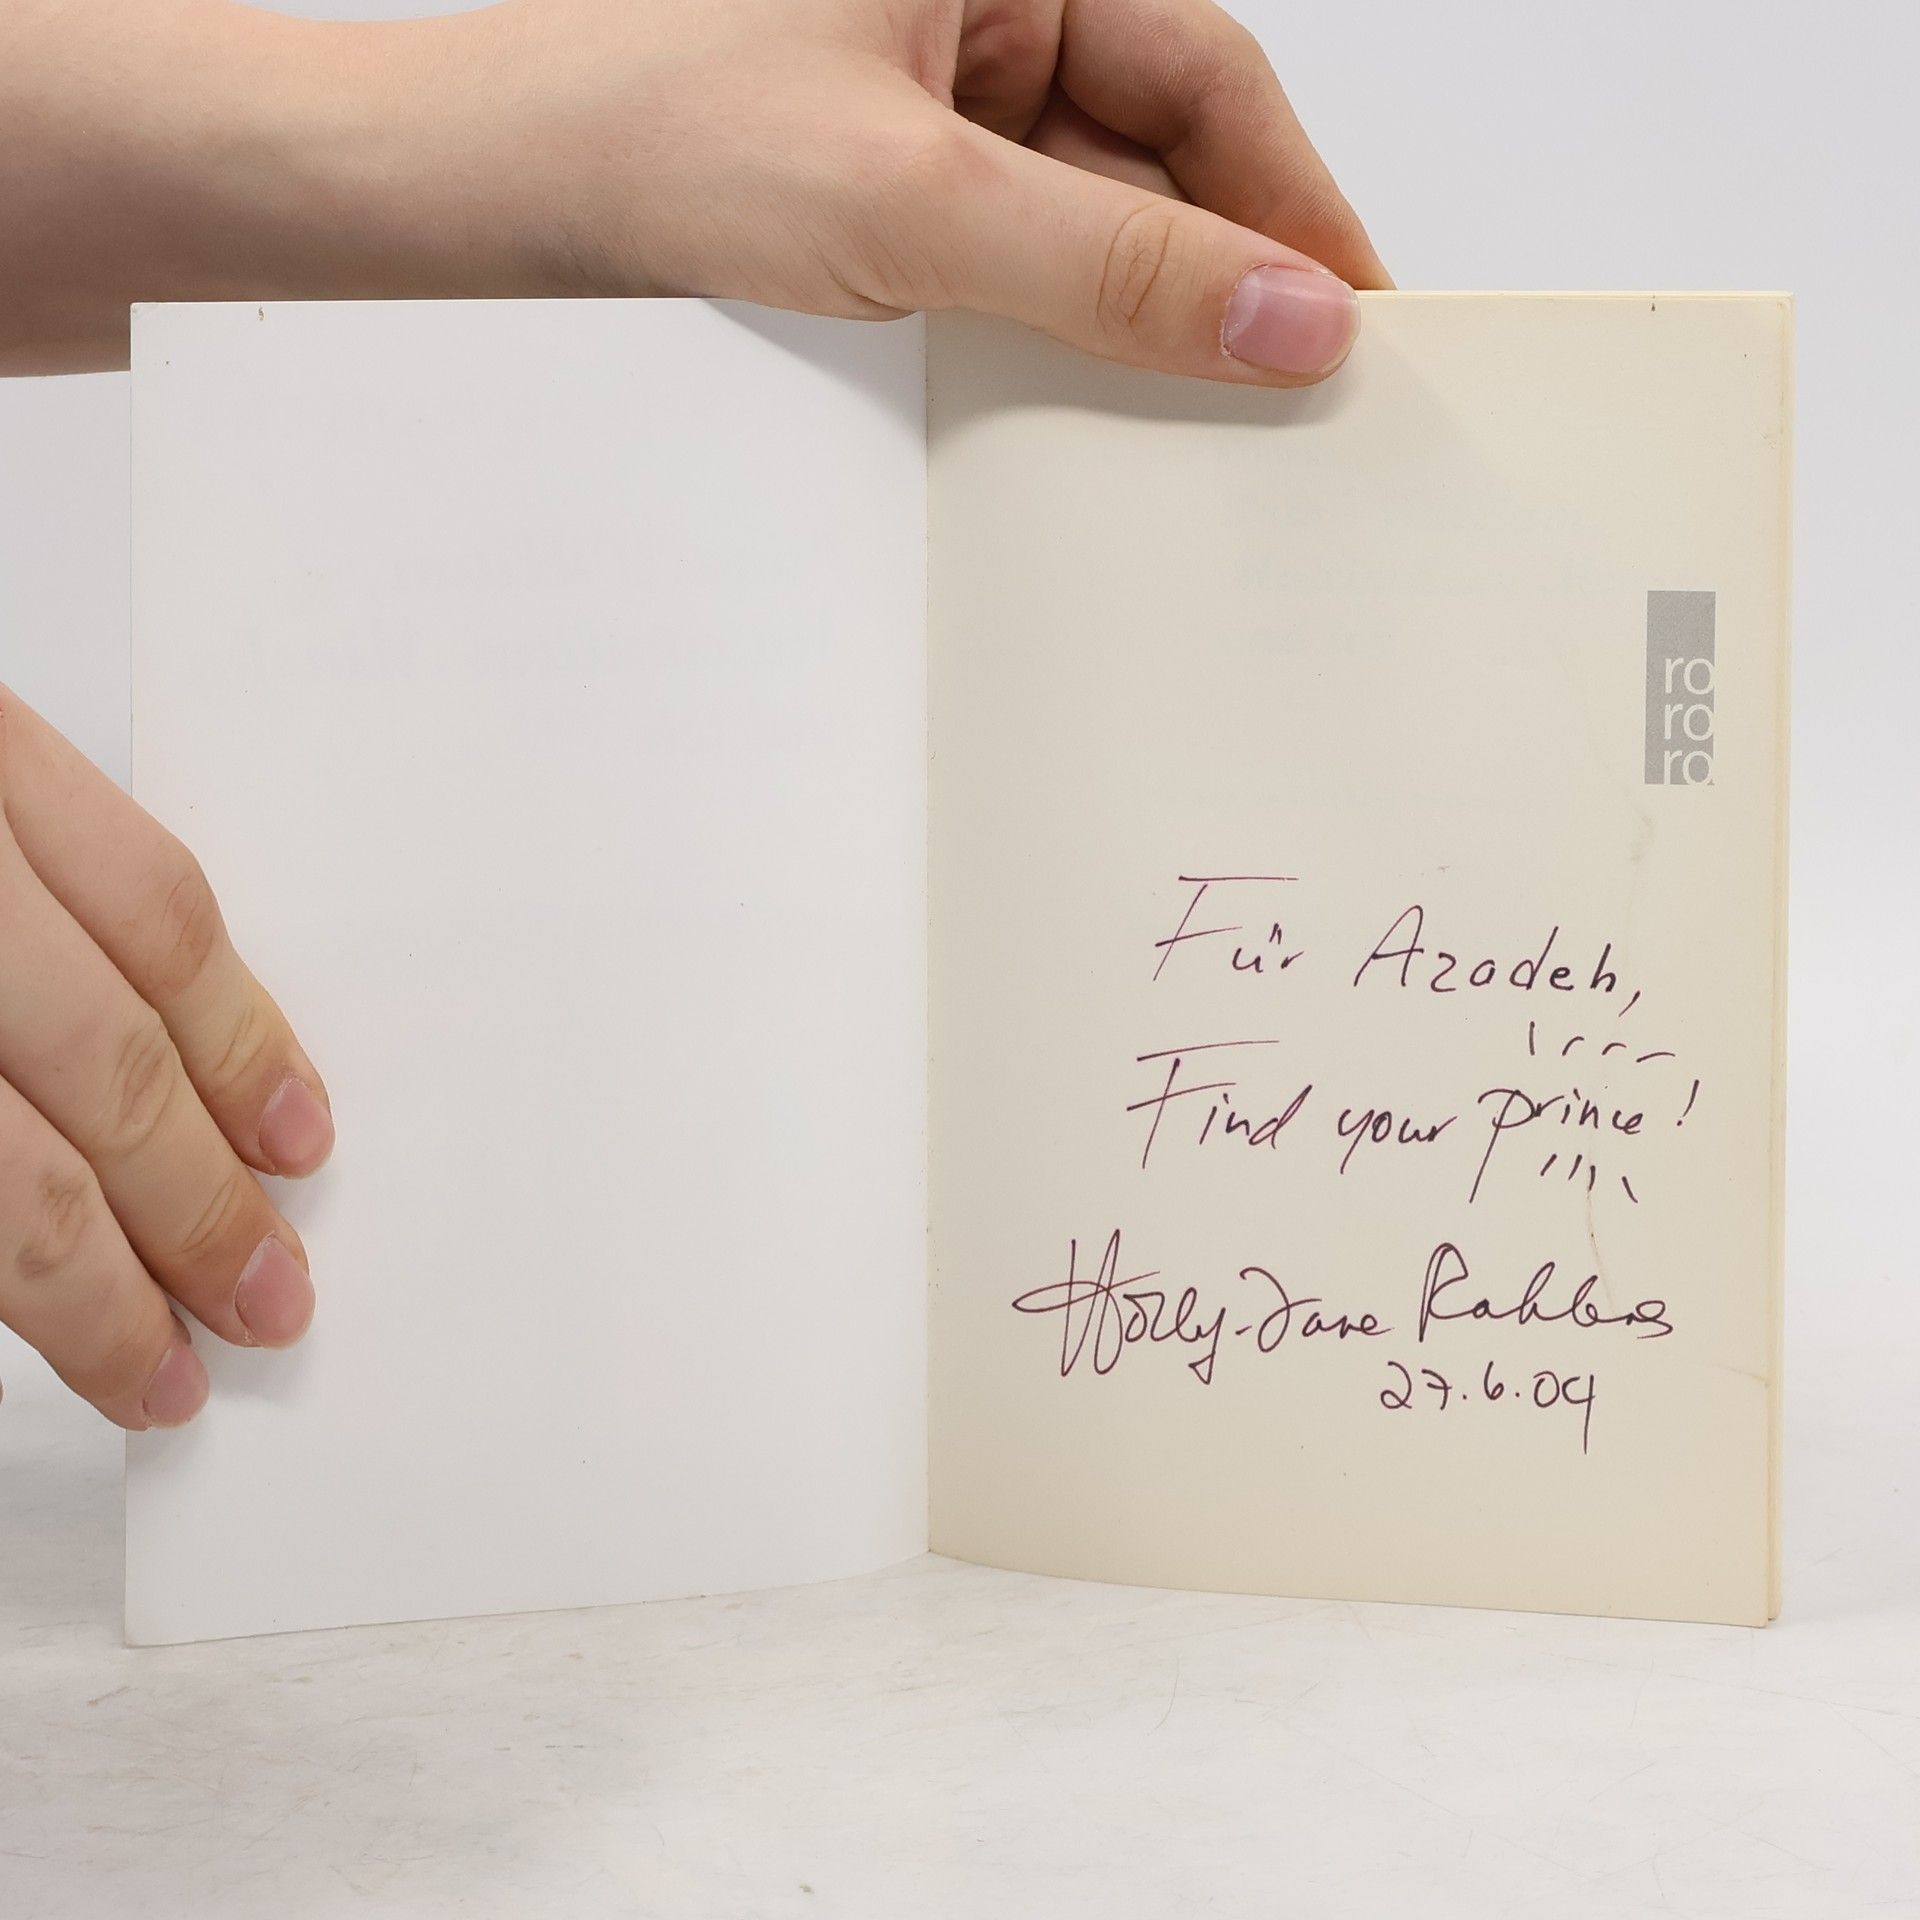 ro
ro
ro
Für Azadeh,
Find your prince!
Holly-Jane Rahlens
27.6.04